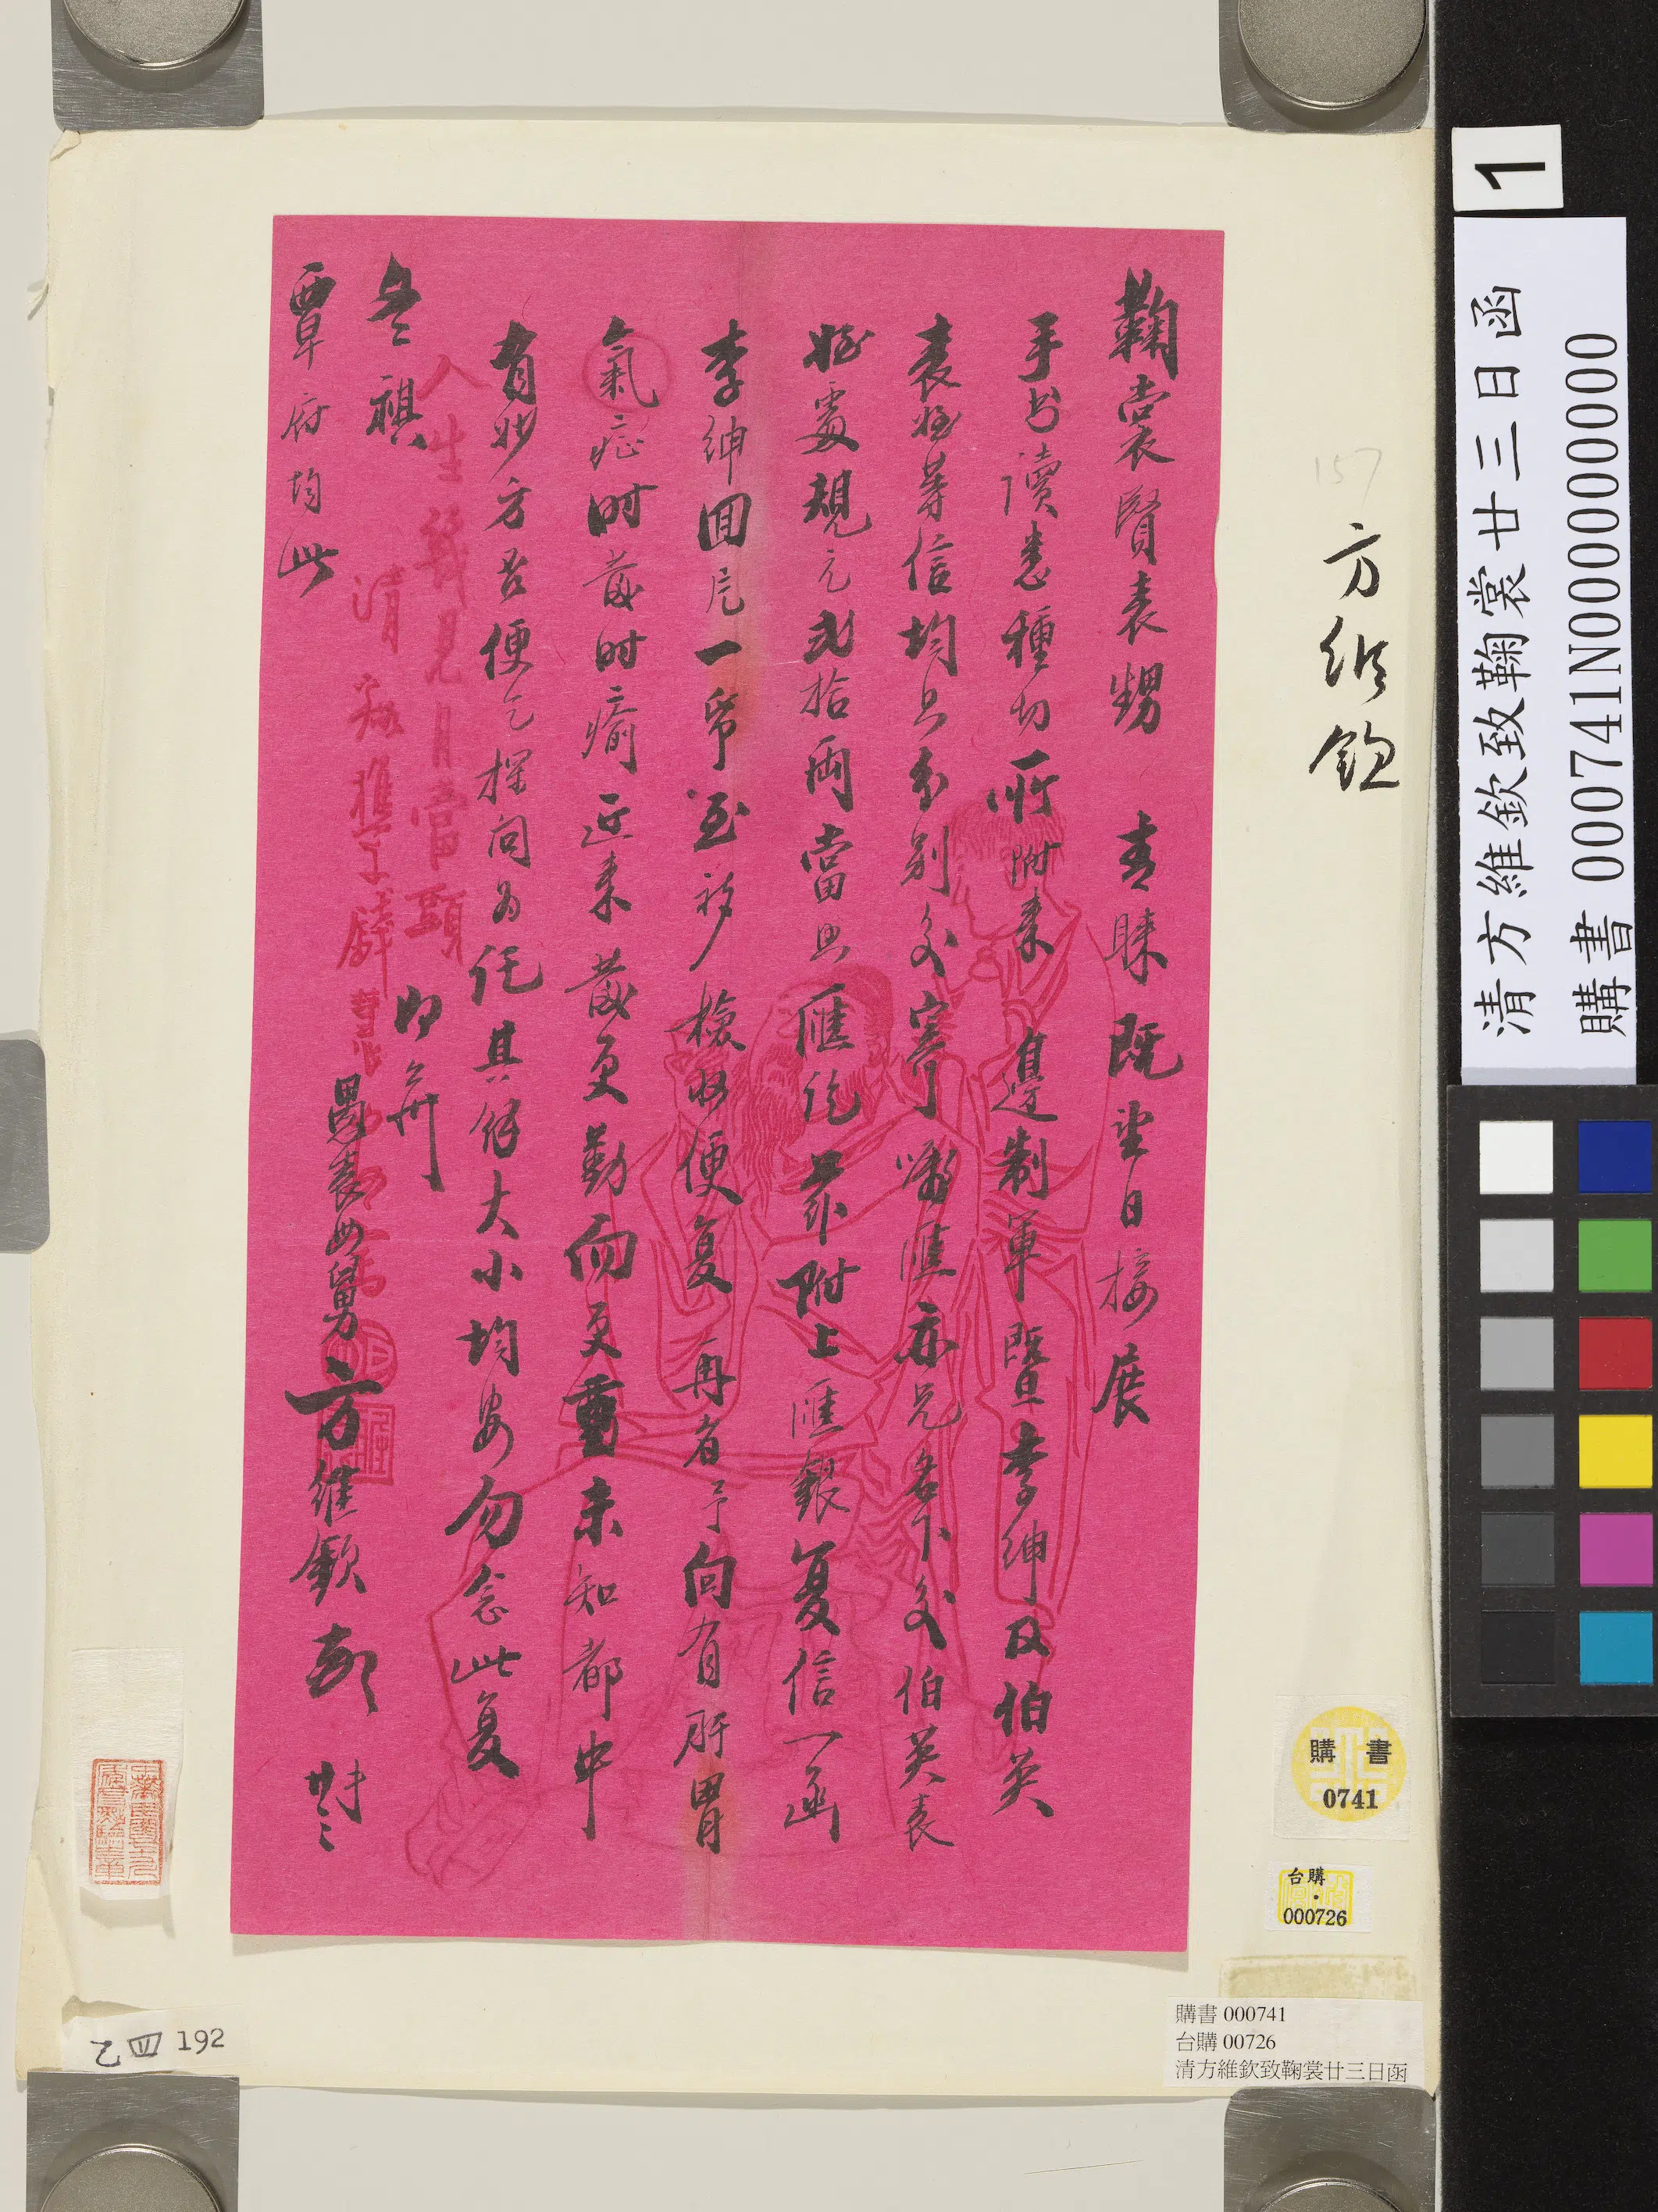 鞠裳賢表甥 青睞既望日接展
手書讀悉種切所附來邊制軍暨李紳及伯英
表姪等信均已分別交寄嘟匯亦兄名下交伯英表
姪處規元貳拾兩當即匯訖茲附上匯銀復信一函
李紳回片一帋至祈檢收便复再者予向有肝胃
氣症时發时瘉近来發更勤而更重未知都中
有妙方否便乞探问为託其餘大小均安勿念此复
即頌
升祺
覃府均此
愚表母舅方維欽頓 廿三
人生幾見月當頭
清
方維欽
157
1
清方維欽致鞠裳廿三日函
購書 000741N000000000
購書
0741
台購
000726
購書 000741
台購 00726
清方維欽致鞠裳廿三日函
乙四 192